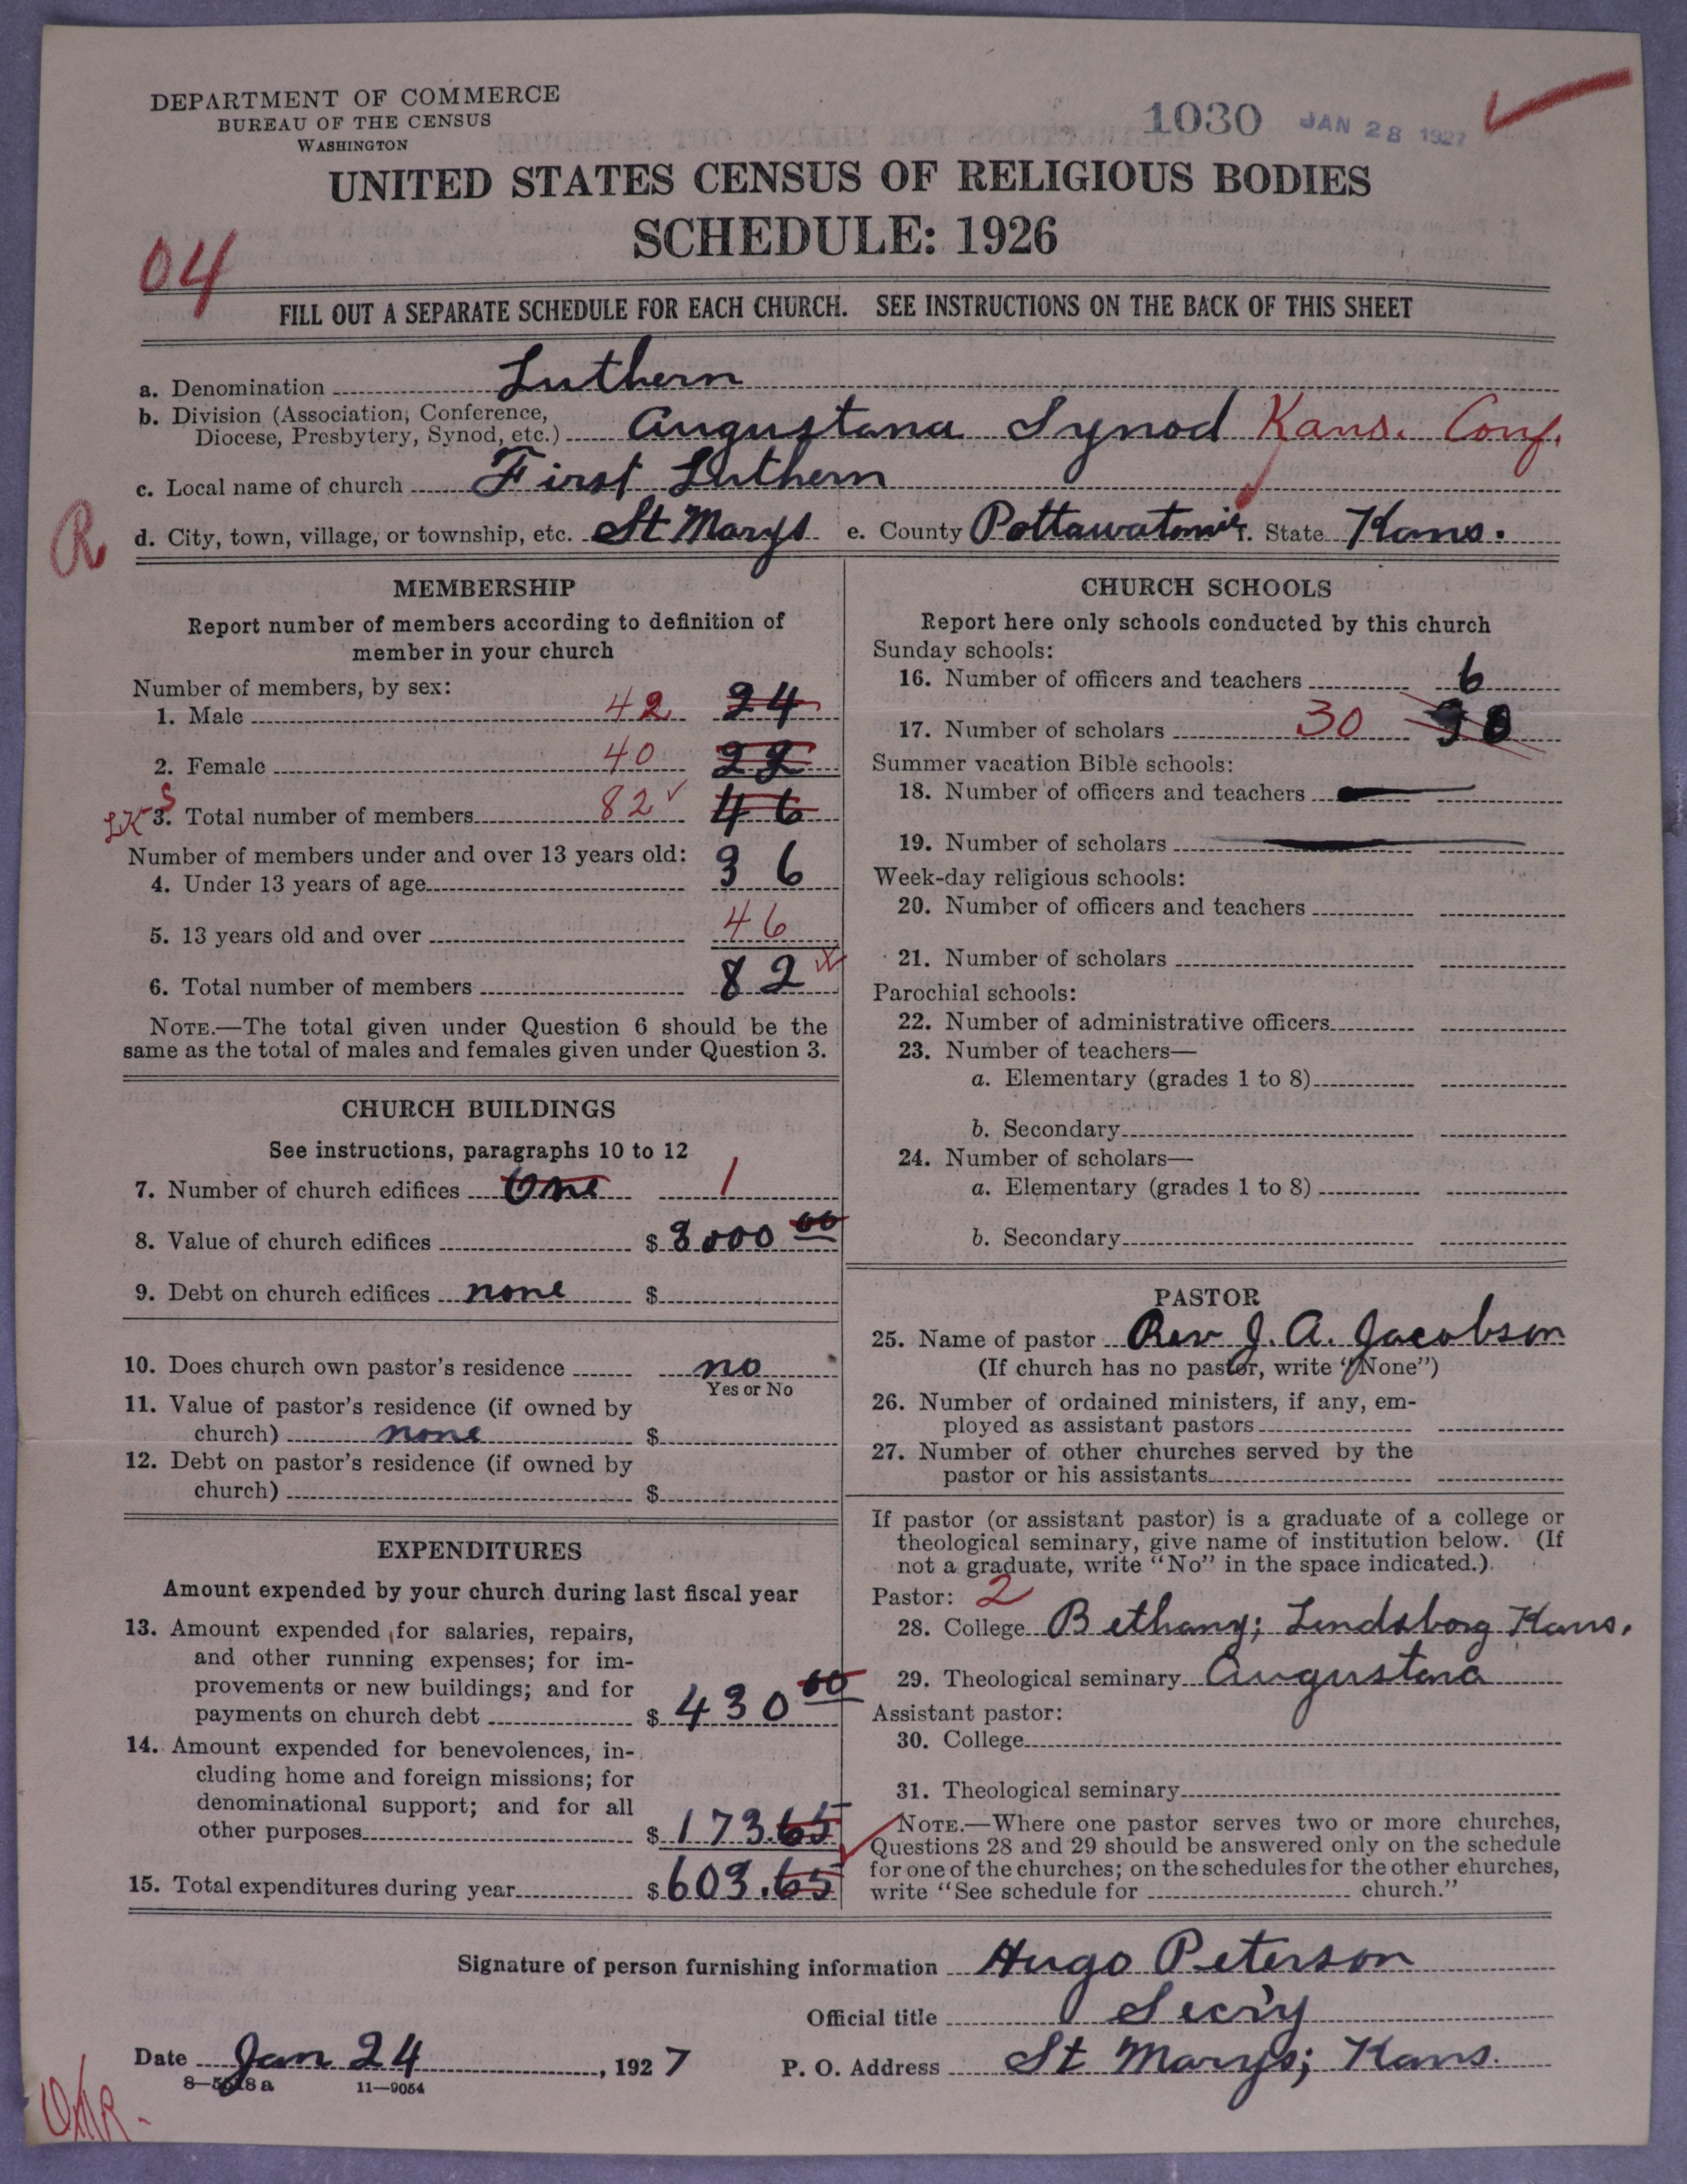 DEPARTMENT OF COMMERCE
BUREAU OF THE CENSUS
WASHINGTON
1030 JAN 28 1927
UNITED STATES CENSUS OF RELIGIOUS BODIES
SCHEDULE: 1926
04
FILL OUT A SEPARATE SCHEDULE FOR EACH CHURCH. SEE INSTRUCTIONS ON THE BACK OF THIS SHEET
a. Denomination Luthern
b. Division (Association, Conference,
Diocese, Presbytery, Synod, etc.) Augustana Synod Kans. Conf.
c. Local name of church First Luthern
R
d. City, town, village, or township, etc. St Marys e. County Pottawatomie f. State Kans.
MEMBERSHIP
Report number of members according to definition of
member in your church
Number of members, by sex:
1. Male 42 24
2. Female 40 22
LK S
3. Total number of members 82 46
Number of members under and over 13 years old:
4. Under 13 years of age 36
5. 13 years old and over 46
6. Total number of members 82
NOTE.—The total given under Question 6 should be the
same as the total of males and females given under Question 3.
CHURCH BUILDINGS
See instructions, paragraphs 10 to 12
7. Number of church edifices One 1
8. Value of church edifices $ 3000 00
9. Debt on church edifices none $
10. Does church own pastor's residence no
Yes or No
11. Value of pastor's residence (if owned by
church) none $
12. Debt on pastor's residence (if owned by
church) $
EXPENDITURES
Amount expended by your church during last fiscal year
13. Amount expended for salaries, repairs,
and other running expenses; for im-
provements or new buildings; and for
payments on church debt $ 430 00
14. Amount expended for benevolences, in-
cluding home and foreign missions; for
denominational support; and for all
other purposes $ 173.65
15. Total expenditures during year $ 603.65
CHURCH SCHOOLS
Report here only schools conducted by this church
Sunday schools:
16. Number of officers and teachers 6
17. Number of scholars 30 30
Summer vacation Bible schools:
18. Number of officers and teachers
19. Number of scholars
Week-day religious schools:
20. Number of officers and teachers
21. Number of scholars
Parochial schools:
22. Number of administrative officers
23. Number of teachers—
a. Elementary (grades 1 to 8)
b. Secondary
24. Number of scholars—
a. Elementary (grades 1 to 8)
b. Secondary
PASTOR
25. Name of pastor Rev J. A. Jacobson
(If church has no pastor, write "None")
26. Number of ordained ministers, if any, em-
ployed as assistant pastors
27. Number of other churches served by the
pastor or his assistants
If pastor (or assistant pastor) is a graduate of a college or
theological seminary, give name of institution below. (If
not a graduate, write "No" in the space indicated.)
Pastor: 2
28. College Bethany; Lindsborg Kans.
29. Theological seminary Augustana
Assistant pastor:
30. College
31. Theological seminary
NOTE.—Where one pastor serves two or more churches,
Questions 28 and 29 should be answered only on the schedule
for one of the churches; on the schedules for the other churches,
write "See schedule for church."
Signature of person furnishing information Hugo Peterson
Official title Sec'y
Date Jan 24, 1927 P. O. Address St Marys; Kans.
11—9054